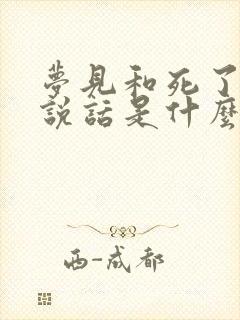 夢見和死了
說話是什麼
西-成都